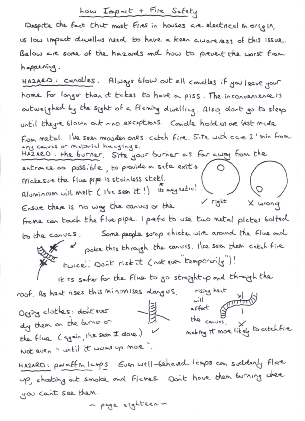 Low Impact + Fire Safety
Despite the fact that most fires in houses are electrical in origin,
us low impact dwellers need to have a keen awareness of this issue.
Below are some of the hazards and how to prevent the worst from
happening.
HAZARD: candles. Always blow out all candles if you leave your
home for longer than it takes to have a piss. The inconvenience is
outweighed by the sight of a flaming dwelling. Also, don't go to sleep
until they're blown out - no exceptions. Candle holders are best made
from metal. I've seen wooden ones catch fire. Site with circa 2' min from
any canvas or material hangings.
HAZARD: the burner. Site your burner as far away from the
entrance as possible, to provide a safe exit.
Make sure the flue pipe is stainless steel.
Aluminium will melt (I've seen it!)
Ensure there is no way the canvas or the
✓ right
✗ wrong
frame can touch the flue pipe. I prefer to use two metal plates bolted
to the canvas. Some people wrap chicken wire around the flue and
poke this through the canvas. I've seen them catch fire
twice. Don't risk it (not even "temporarily")!
It is safer for the flue to go straight up and through the
roof. As heat rises this minimises dangers.
rising heat
will
affect
the canvas
making it more likely to catch fire
Drying clothes: don't ever
dry them on the burner or
the flue (again, I've seen it done).
Not even "until it warms up more".
HAZARD: paraffin lamps Even well-behaved lamps can suddenly flare
up, chucking out smoke and flames. Don't have them burning where
you can't see them.
~ page eighteen ~